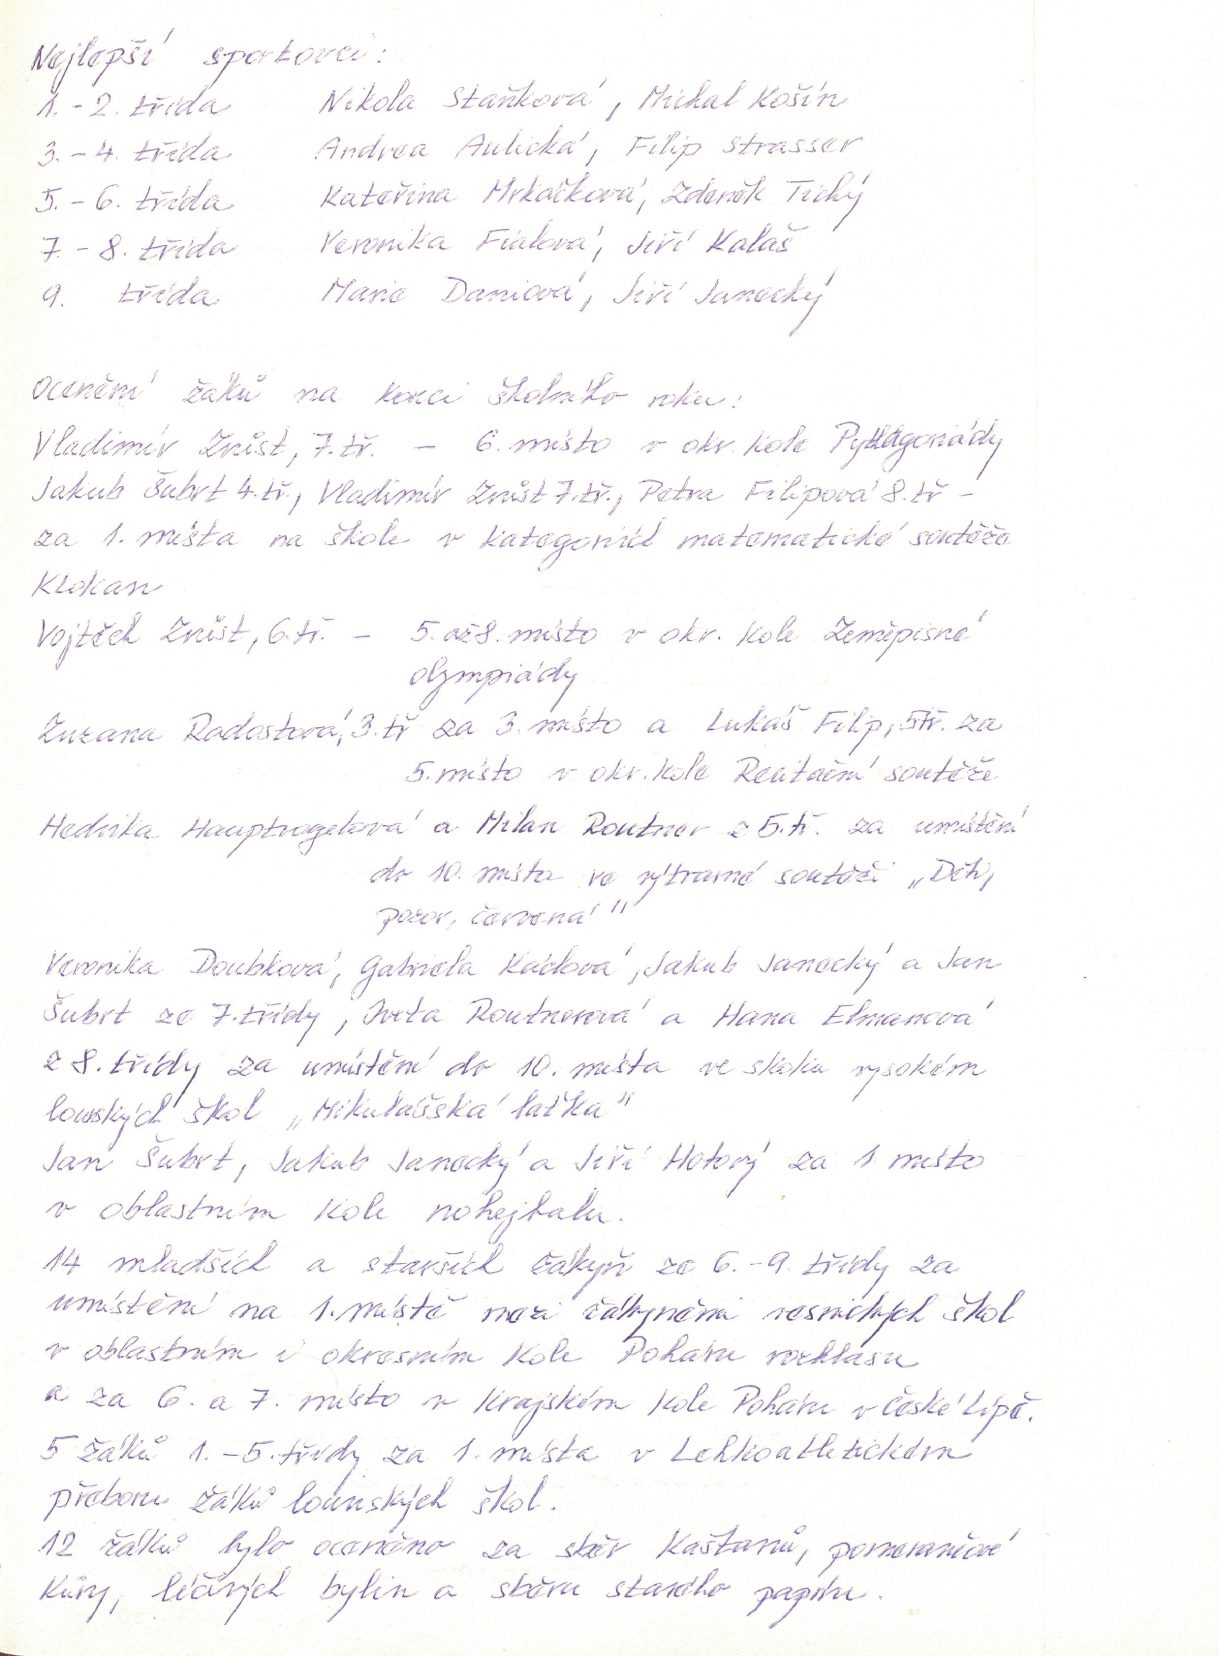 Nejlepší sportovci:
1.-2. třída Nikola Staňková, Michal Košín
3.-4. třída Andrea Aulická, Filip Strasser
5.-6. třída Kateřina Mrkáčková, Zdeněk Tichý
7.-8. třída Veronika Fialová, Jiří Kalaš
9. třída Marie Daniová, Jiří Janecký
Ocenění žáků na konci školního roku:
Vladimír Zništ, 7.tř. - 6. místo v okr. kole Pythagoriády
Jakub Šubrt 4.tř., Vladimír Zništ 7.tř., Petra Filipová 8.tř -
za 1. místa na škole v kategoriích matematické soutěže
Klokan
Vojtěch Zništ, 6.tř. - 5. až 8. místo v okr. kole Zeměpisné
olympiády
Zuzana Radostová, 3.tř za 3. místo a Lukáš Filip, 5tř. za
5. místo v okr. kole Recitační soutěže
Hedvika Hauptvogelová a Milan Routner z 5.tř. za umístění
do 10. místa ve výtvarné soutěži „Děti,
pozor, červená"
Veronika Doubková, Gabriela Káclová, Jakub Janecký a Jan
Šubrt ze 7. třídy, Iveta Routnerová a Hana Elmanová
z 8. třídy za umístění do 10. místa ve skoku vysokém
lounských škol „Mikulášská laťka"
Jan Šubrt, Jakub Janecký a Jiří Hotový za 1 místo
v oblastním kole nohejbalu.
14 mladších a starších žákyň ze 6.-9. třídy za
umístění na 1. místě mezi žákyněmi vesnických škol
v oblastním i okresním kole Poháru rozhlasu
a za 6. a 7. místo v Krajském kole Poháru v České Lípě.
5 žáků 1.-5. třídy za 1. místa v Lehkoatletickém
přeboru žáků lounských škol.
12 žáků bylo oceněno za sběr kaštanů, pomerančové
kůry, léčivých bylin a sběru starého papíru.